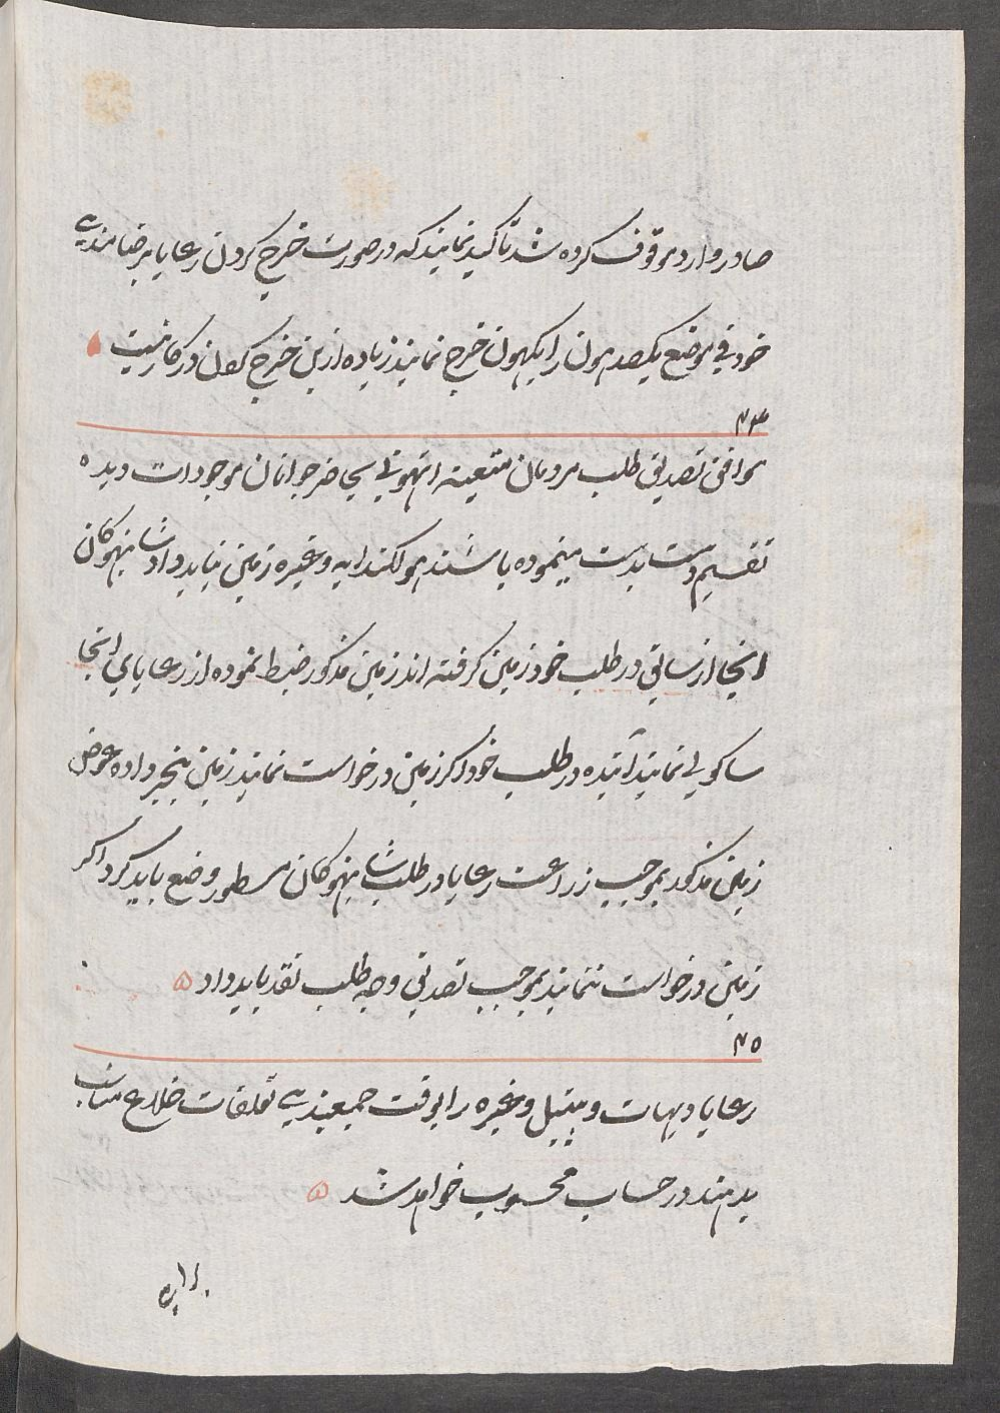 صادر وارد موقوف کرده شد تاکید نمایند که در صورت خرج کردن رعایا برضامندی
خود فی موضع یکصد هون را یکهون خرج نمایند زیاده ازین خرج کردن درکار نیست
موافق تصدیق طلب مردمان متعینه انتهوی بحاضر جوانان موجودات دیده
تقسیم دست بدست مینموده باشند مولکندایه وغیره زمین نباید داد شا بنهوکان
انجا از سابق در طلب خود زمین کرفته اند زمین مذکور ضبط نموده از رعایای انجا
ساکولی نمایند آینده در طلب خود اکر زمین درخواست نمایند زمین بنجر داده عوض
زمین مذکور بموجب زراعت رعایا در طلب شا بنهوکان مسطور وضع باید کرد اکر
زمین درخواست ننمایند بموجب تصدیق وجه طلب نقد باید داد
۷۵
رعایا دیهات و پتیل وغیره را بوقت جمعبندی تعلقات خلاع مناسب
بدهند در حساب محسوب خواهد شد